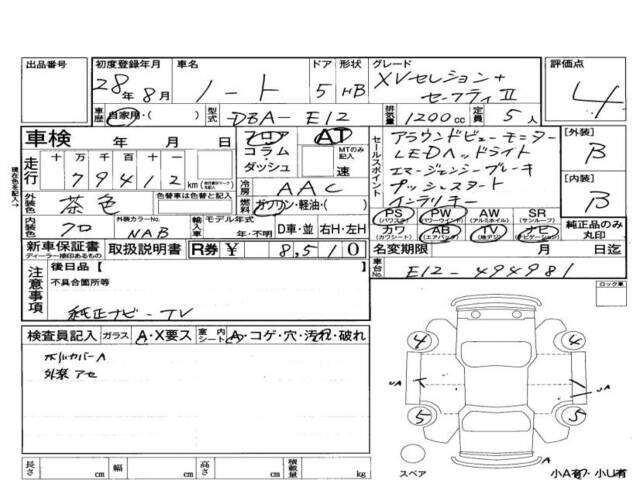 出品番号
初度登録年月 28年8月
車名 ノート
ドア 5
形状 HB
グレード XVセレクション+
セーフティⅡ
評価点 4
車歴 自家用・( )
型式 DBA-E12
排気量 1200cc
定員 5人
車検 年 月 日
フロア
コラム・
ダッシュ
AT
MTのみ記入
速
セールスポイント
アラウンドビューモニター
LEDヘッドライト
エマージェンシーブレーキ
プッシュスタート
インテリキー
[外装] B
[内装] B
走行 十万千百十一
79412 km
現在色を記入→
冷房 AAC
外装色 茶色
色替車は色替前色
燃料 ガソリン・軽油・( )
内装色 クロ
外装カラーNo. NAB
輸入車
モデル年式 年・不明
D車・並
右H・左H
PS(パワステ)
PW(パワーウインド)
AW(アルミホイル)
SR(サンルーフ)
カワ(カワシート)
AB(エアバック)
TV(地デジ)
ナビ(ナビゲーション)
純正品のみ丸印
新車保証書
ディーラー捺印あるもの
取扱説明書
R券 ¥ 8,510
名変期限 月 日迄
車台No. E12-494981
注意事項
後日品【 】
不具合箇所等
純正ナビ-TV
ロック車
検査員記入
ガラス A・X要ス
室内シート A・コゲ・穴・汚れ・破れ
外装 アセ
4
4
A
5
5
スペア
長さ cm
幅 cm
高さ cm
積載量 kg
小A有り・小U有